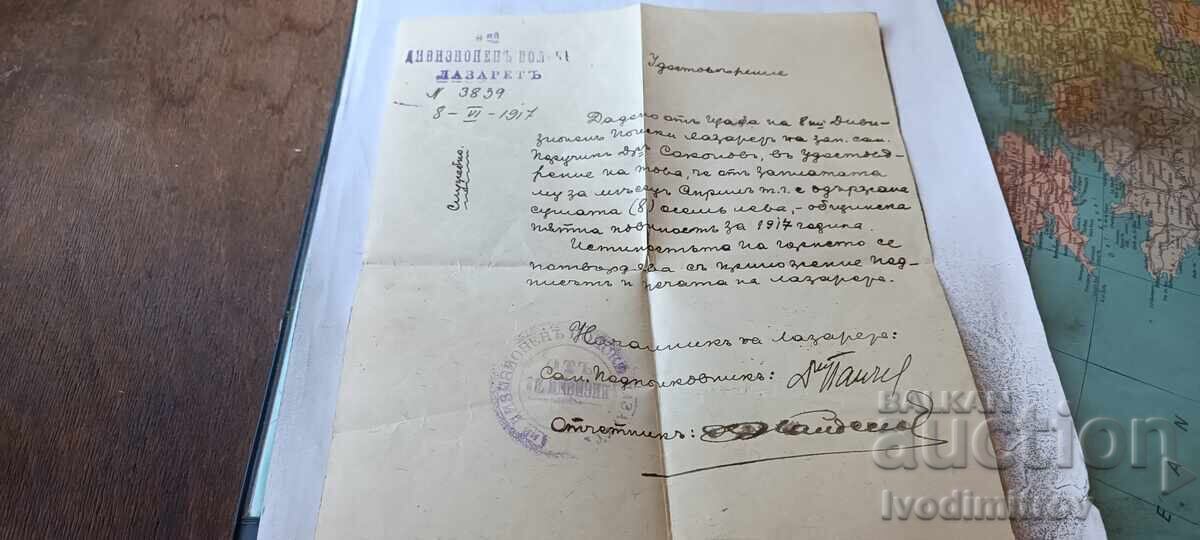 8 ий
ДИВИЗИОНЕНЪ ПОЛСКИ
ЛАЗАРЕТЪ
N 3839
8 - VI - 1917
Служебно.
Удостовѣрение
Дадено отъ щаба на 8 ий Диви-
зионенъ полски лазаретъ на зап. сан.
Поручикъ Д-ръ Соколовъ, въ удостовѣ-
рение на това, че отъ заплатата
му за мѣсецъ Априлъ т.г. е одържана
сумата (8) осемь лева, - общинска
пѫтна повинность за 1917 година.
Истинностьта на горнето се
потвърдява съ приложение под-
писътъ и печата на лазарета.
Началникъ на лазарета:
Сан. Подполковникъ: Д-ръ Панчев
Отчетникъ:
BALKAN
auction
Ivodimitrov
E A N